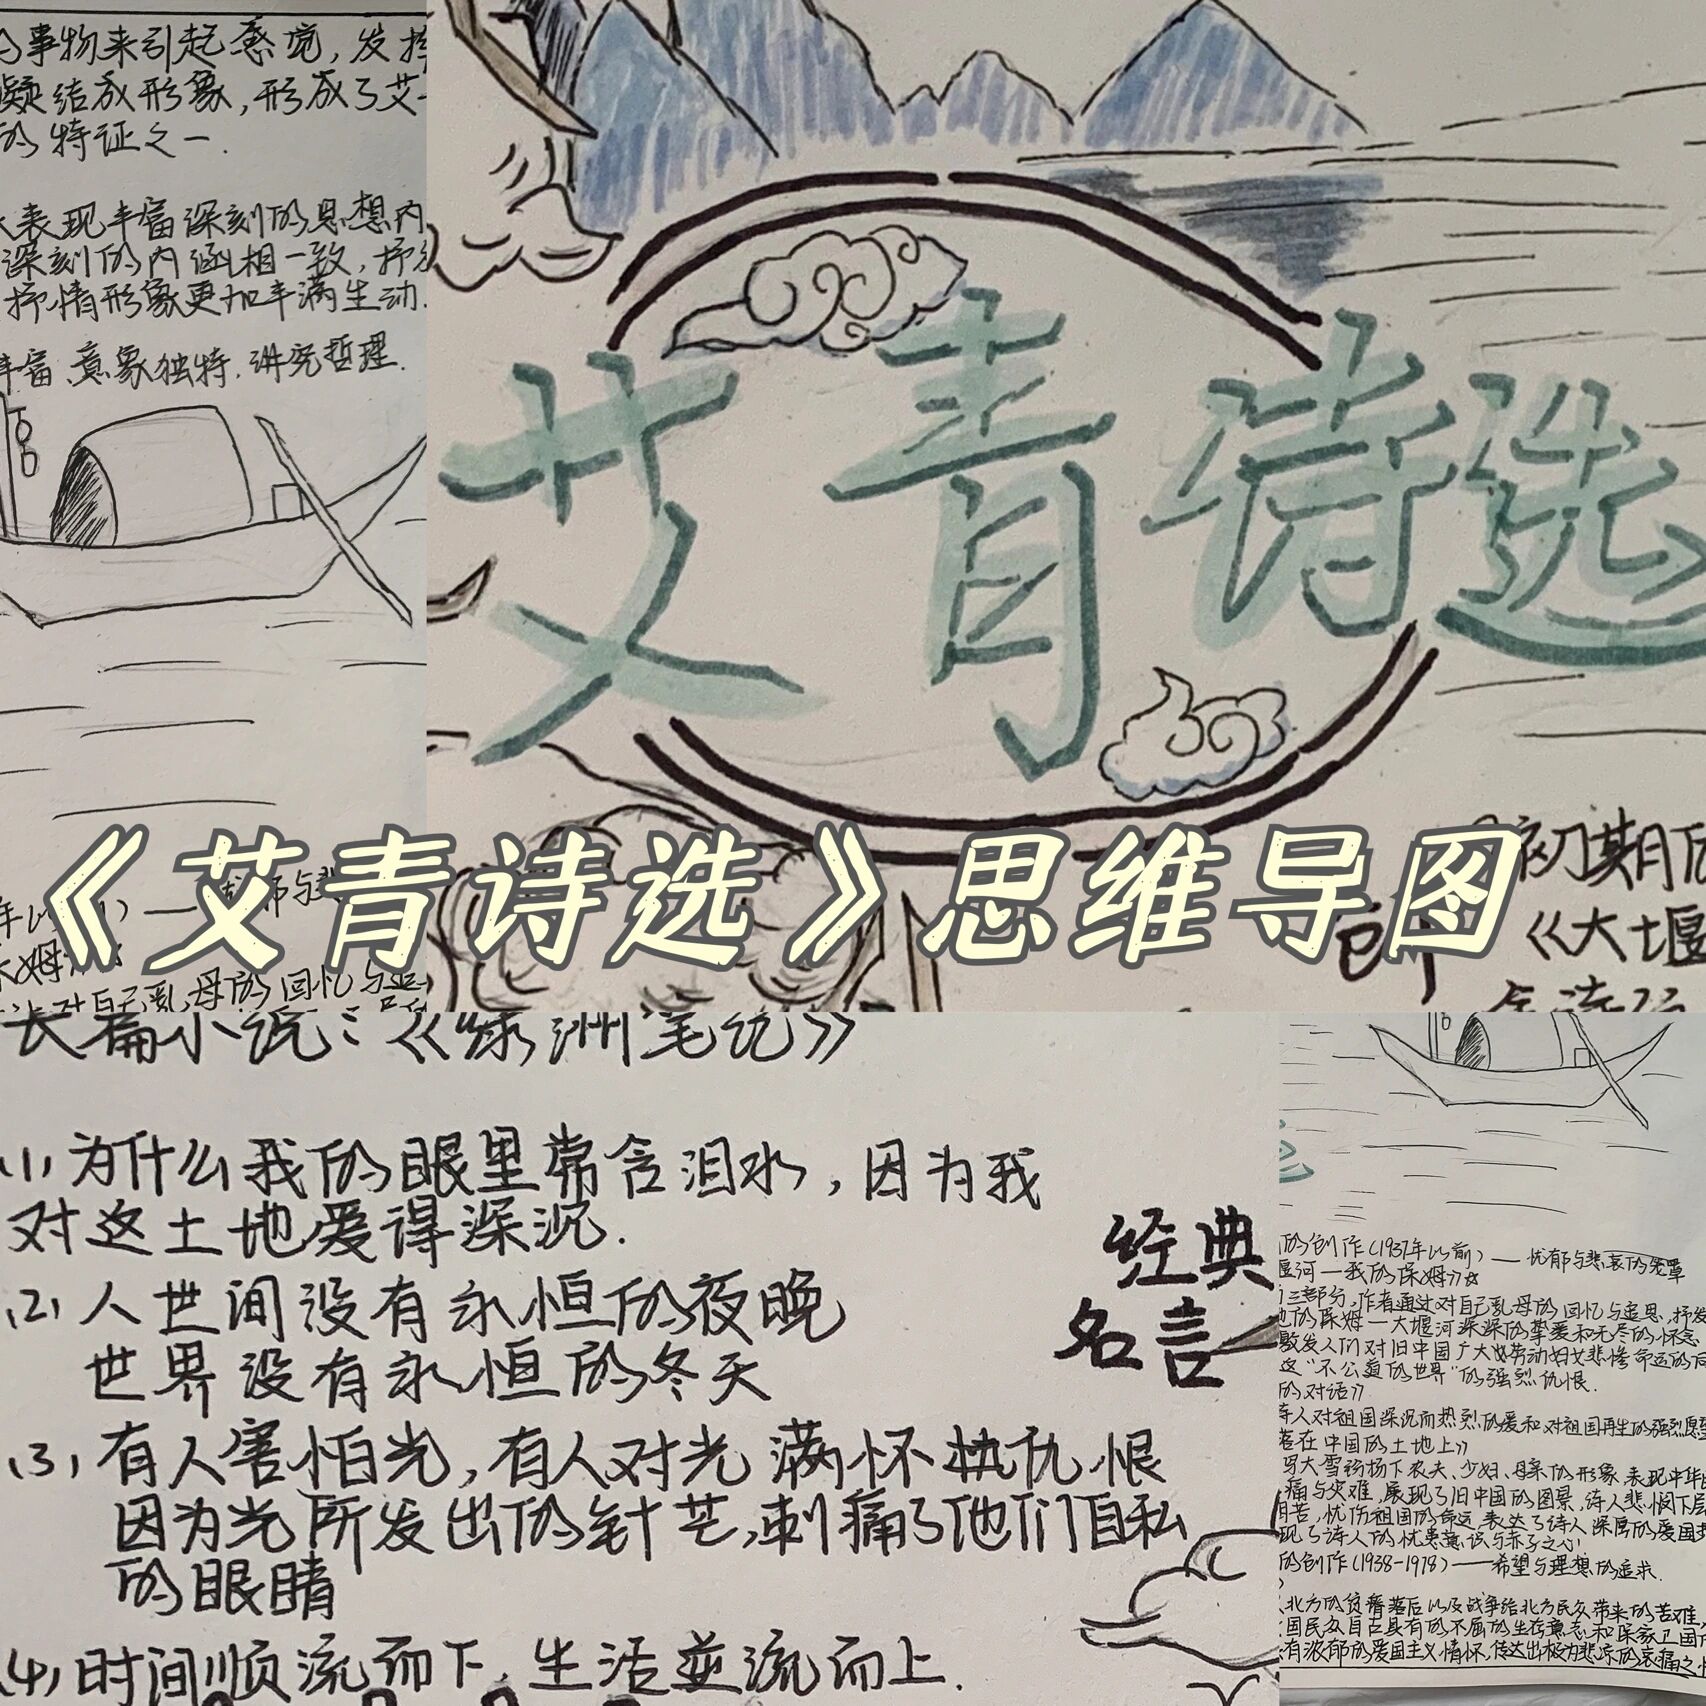 事物来引起意境，发挥
凝结成形象，形成了艾
的特证之一.
表现丰富深刻的思想内
深刻的内涵相一致，抒
抒情形象更加丰满生动.
丰富、意象独特.讲究哲理.
艾青诗选
初期的
《大堰
创
《艾青诗选》思维导图
年以前）——郁与悲
保姆》
对自己乳母的回忆与追
长篇小说：《绿洲笔记》
(1)为什么我的眼里常含泪水，因为我
对这土地爱得深沉.
(2)人世间没有永恒的夜晚
世界没有永恒的冬天
(3)有人害怕光，有人对光满怀仇恨
因为光所发出的针芒，刺痛了他们自私
的眼睛
(4)时间顺流而下，生活逆流而上.
经典
名言
的创作（1937年以前）——忧郁与悲哀的笼罩
堰河—我的保姆》☆
三部分，作者通过对自己乳母的回忆与追思，抒发
他的保姆—大堰河深深的挚爱和无尽的怀念，
激发人们对旧中国广大劳动妇女悲惨命运的同
这“不公道的世界”的强烈仇恨.
的对话》
诗人对祖国深沉而热烈的爱和对祖国再生的强烈愿望
落在中国的土地上》
写大雪纷扬下农夫、少妇、母亲的形象，表现中华民
痛与灾难，展现了旧中国的图景，诗人悲悯下层
苦，忧伤祖国的命运，表达了诗人深厚的爱国
现了诗人的忧患意识与赤子之心
的创作（1938-1978）——希望与理想的追求.
北方的贫瘠落后以及战争给北方民众带来的苦难，
国民众自古具有的不屈的生存意志和保家卫国
有浓郁的爱国主义情怀，传达出极为悲凉的哀痛之情